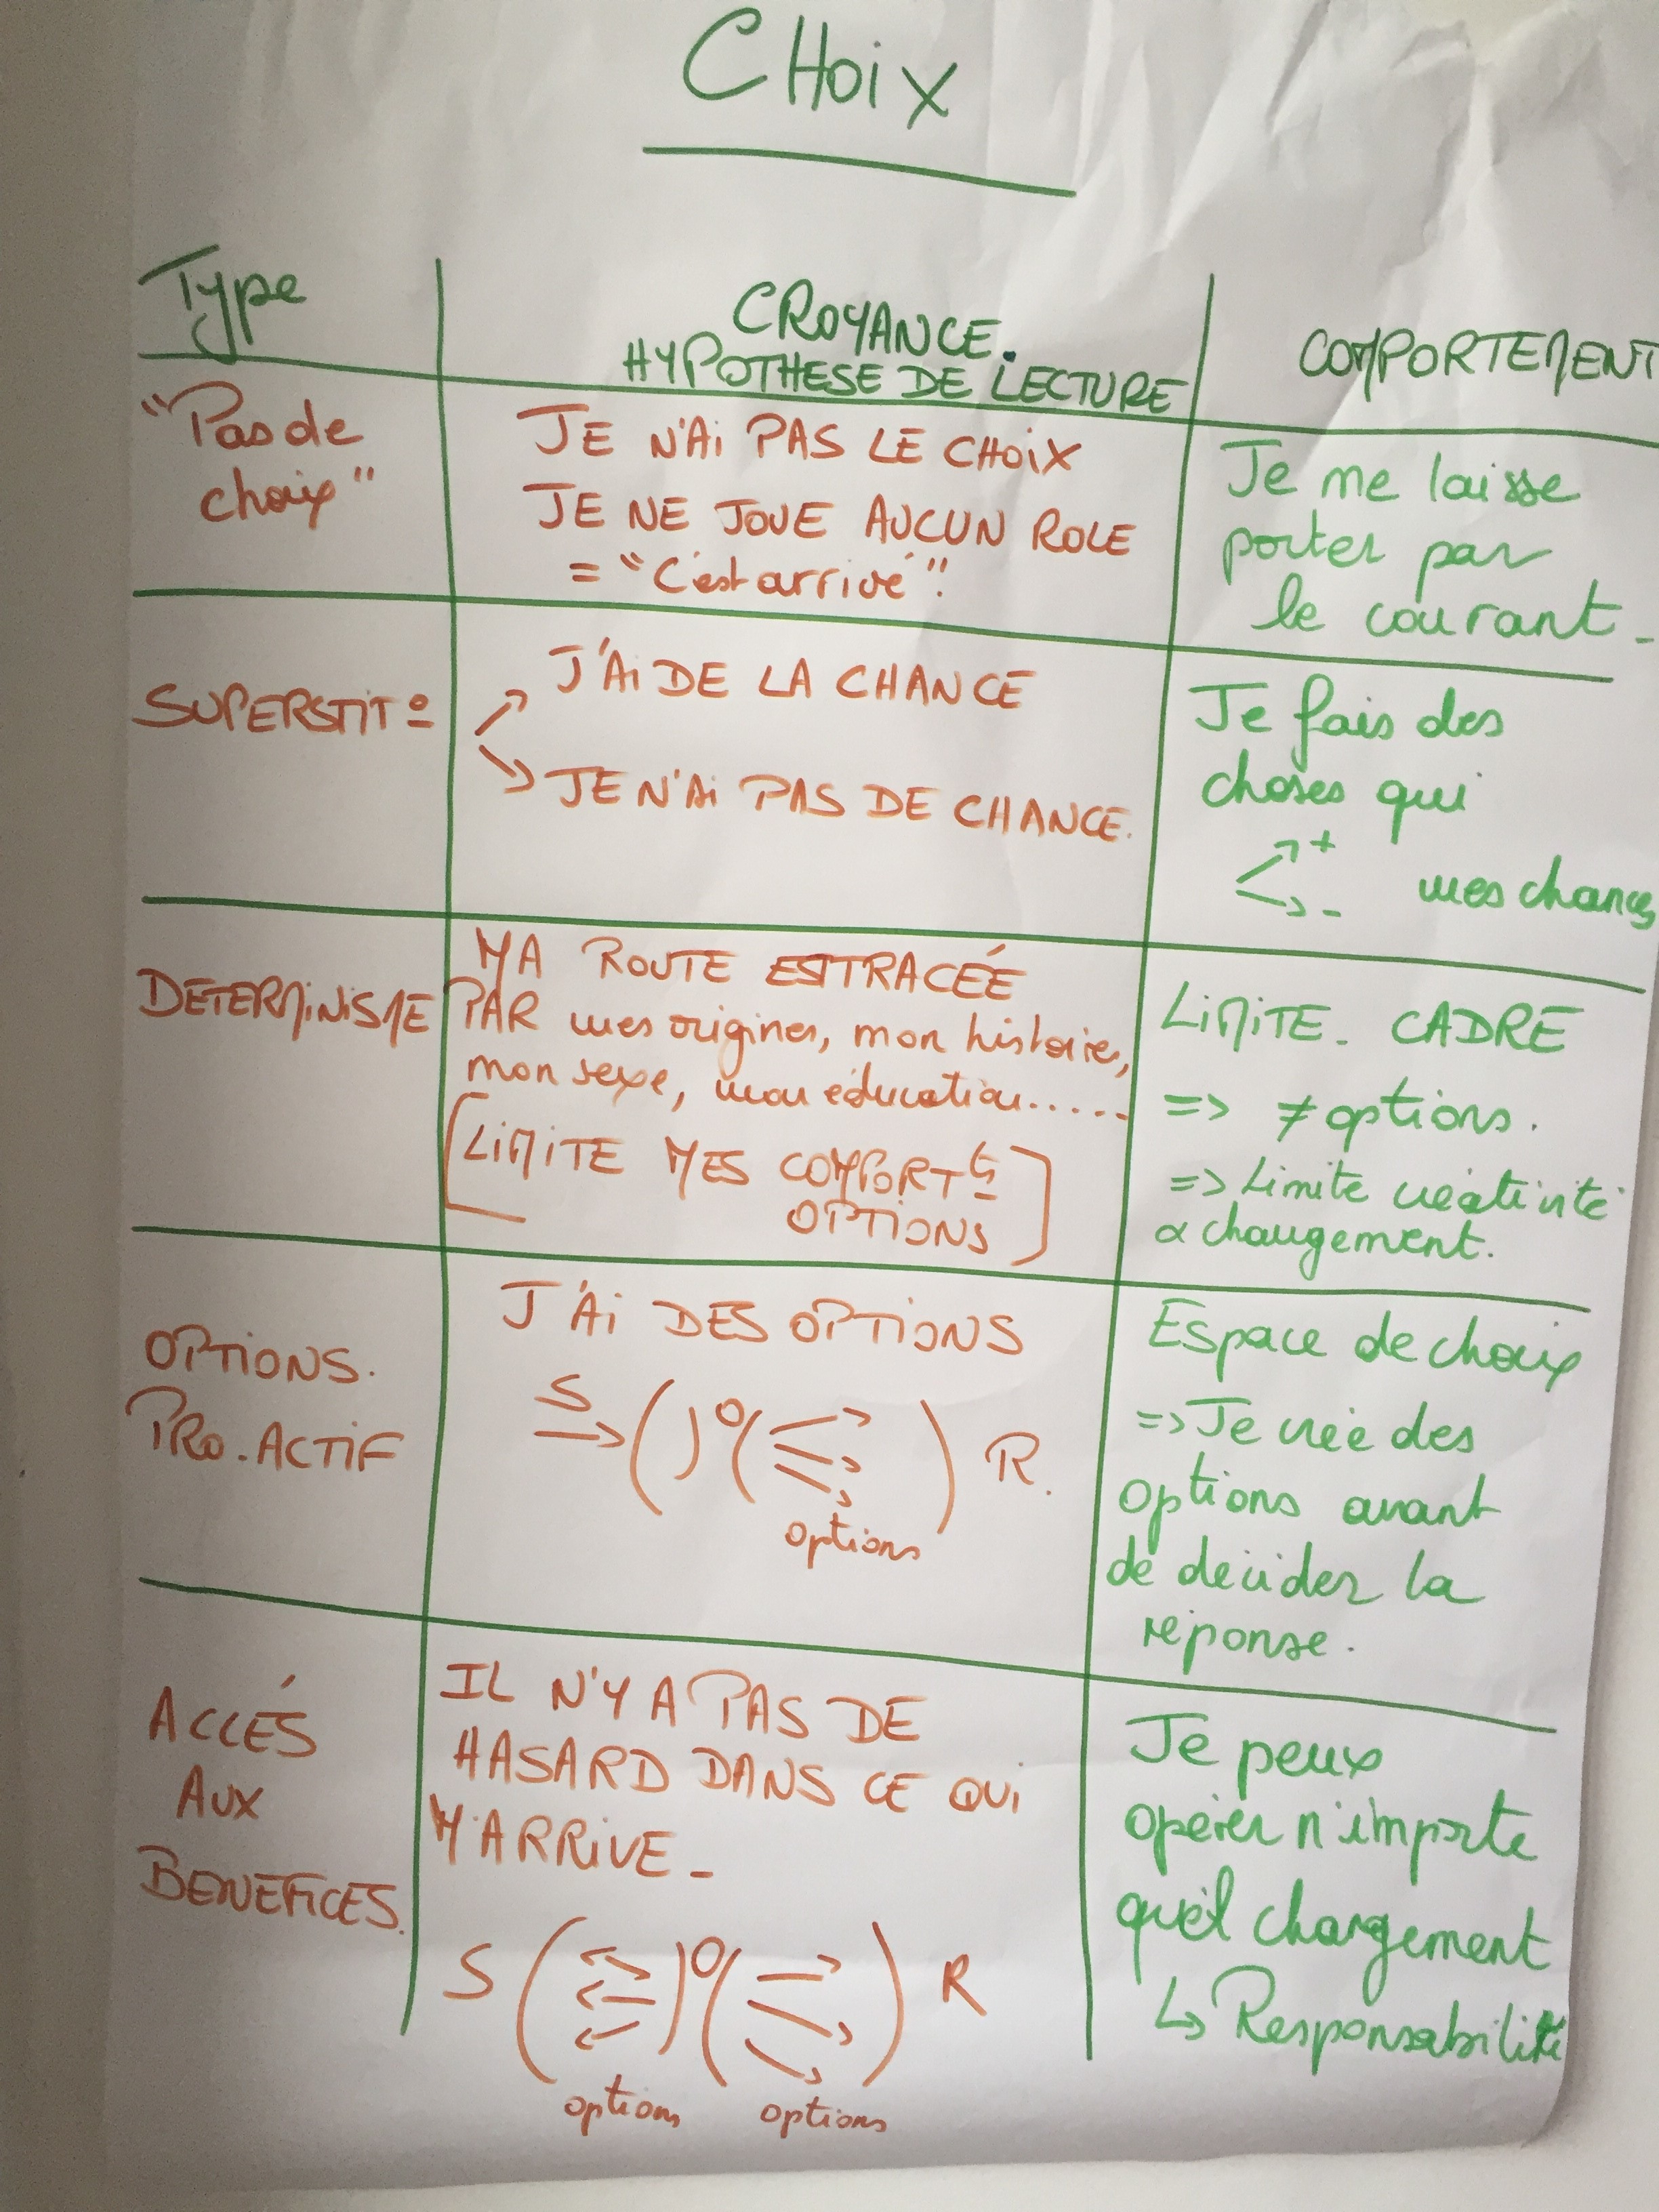 CHoix
Type
CROYANCE.
HYPOTHESE DE LECTURE
COMPORTEMENT
"Pas de
choix"
JE N'Ai PAS LE CHOiX
JE NE JOUE AUCUN ROLE
= "C'est arrivé".
Je me laisse
porter par
le courant_
SUPERSTIT°
J'Ai DE LA CHANCE
JE N'Ai PAS DE CHANCE.
Je fais des
choses qui
+
- mes chances
DETERMiNiSME
MA ROUTE EST TRACÉE
PAR mes origines, mon histoire,
mon sexe, mon éducation.....
[LiMiTE MES COMPORTts
OPTiONS]
LiMiTE_ CADRE
=> ≠ options.
=> Limite créativité
& changement.
OPTiONS.
PRO.ACTiF
J'Ai DES OPTiONS
S
O
R.
options
Espace de choix
=> Je crée des
options avant
de décider la
réponse.
ACCÉS
AUX
BENEFiCES.
IL N'Y A PAS DE
HASARD DANS CE QUi
M'ARRiVE_
S O R
options options
Je peux
opérer n'importe
quel changement
↳ Responsabilité